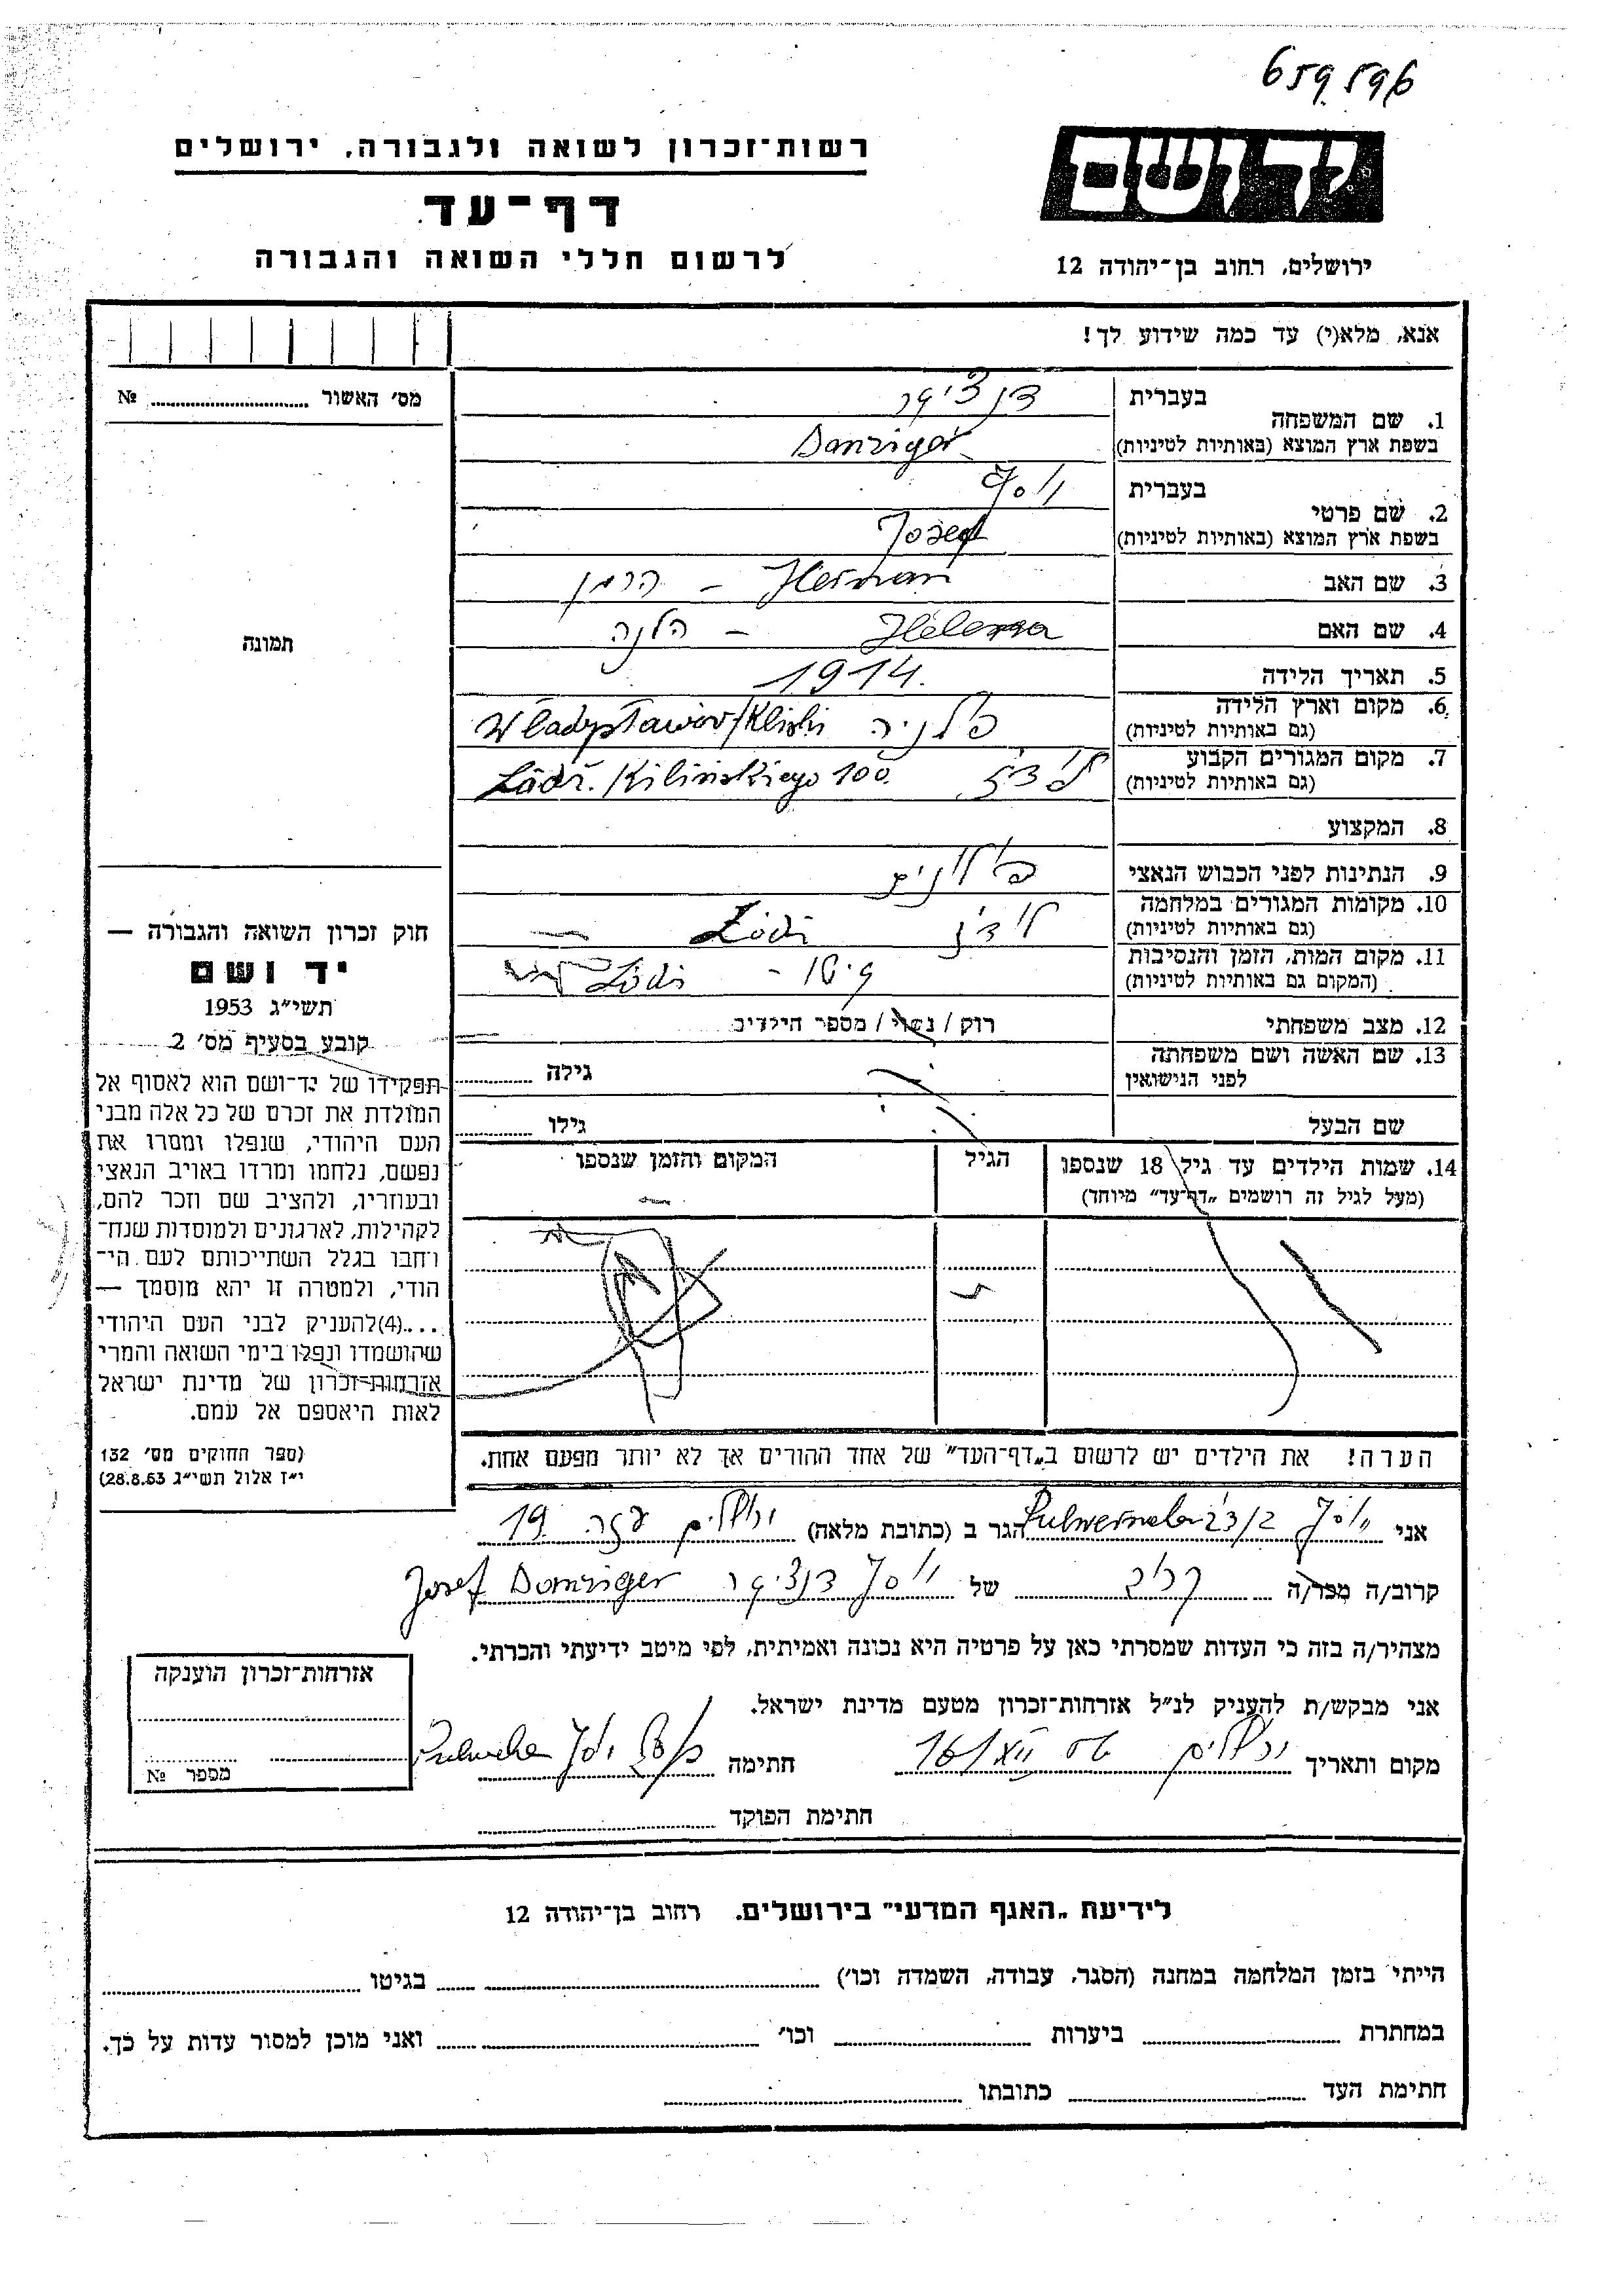 659596
רשות־זכרון לשואה ולגבורה, ירושלים
דף־עד
לרשום חללי השואה והגבורה
יד ושם
ירושלים, רחוב בן־יהודה 12
אנא, מלא(י) עד כמה שידוע לך!
מס׳ האשור № 
1. שם המשפחה
בעברית
דנציגר
בשפת ארץ המוצא (באותיות לטיניות)
Danziger
2. שם פרטי
בעברית
יוסף
בשפת ארץ המוצא (באותיות לטיניות)
Josef
3. שם האב Herman – הרמן
4. שם האם Helena – הלנה
5. תאריך הלידה 1914.
6. מקום וארץ הלידה
(גם באותיות לטיניות)
פולניה
7. מקום המגורים הקבוע
(גם באותיות לטיניות)
לודז Łódź. Kilińskiego 100.
8. המקצוע
9. הנתינות לפני הכבוש הנאצי
10. מקומות המגורים במלחמה
(גם באותיות לטיניות)
Łódź
11. מקום המות, הזמן והנסיבות
(המקום גם באותיות לטיניות)
Łódź
12. מצב משפחתי
רוק / נשוי / מספר הילדים
13. שם האשה ושם משפחתה
לפני הנישואין
גילה
שם הבעל
גילו
14. שמות הילדים עד גיל 18 שנספו
(מעל לגיל זה רושמים „דף־עד״ מיוחד)
הגיל
המקום והזמן שנספו
תמונה
חוק זכרון השואה והגבורה —
יד ושם
תשי״ג 1953
קובע בסעיף מס׳ 2
תפקידו של יד־ושם הוא לאסוף אל
המולדת את זכרם של כל אלה מבני
העם היהודי, שנפלו ומסרו את
נפשם, נלחמו ומרדו באויב הנאצי
ובעוזריו, ולהציב שם וזכר להם,
לקהילות, לארגונים ולמוסדות שנח־
רחבו בגלל השתייכותם לעם הי־
הודי, ולמטרה זו יהא מוסמך —
....(4)להעניק לבני העם היהודי
שהושמדו ונפלו בימי השואה והמרי
אזרחות־זכרון של מדינת ישראל
לאות היאספם אל עמם.
(ספר החוקים מס׳ 132
י״ז אלול תשי״ג 28.8.53)
הערה! את הילדים יש לרשום ב„דף־העד״ של אחד ההורים אך לא יותר מפעם אחת.
אני יוסף הגר ב (כתובת מלאה) ירושלים עזה 19
קרוב/ה מכר/ה קרוב של יוסף דנציגר Josef Danziger
מצהיר/ה בזה כי העדות שמסרתי כאן על פרטיה היא נכונה ואמיתית, לפי מיטב ידיעתי והכרתי.
אני מבקש/ת להעניק לנ״ל אזרחות־זכרון מטעם מדינת ישראל.
מקום ותאריך ירושלים חתימה
חתימת הפוקד
אזרחות־זכרון הוענקה
מספר №
לידיעת „האגף המדעי״ בירושלים. רחוב בן־יהודה 12
הייתי בזמן המלחמה במחנה (הסגר, עבודה, השמדה וכו׳) בגיטו
במחתרת ביערות וכו׳ ואני מוכן למסור עדות על כך.
חתימת העד כתובתו